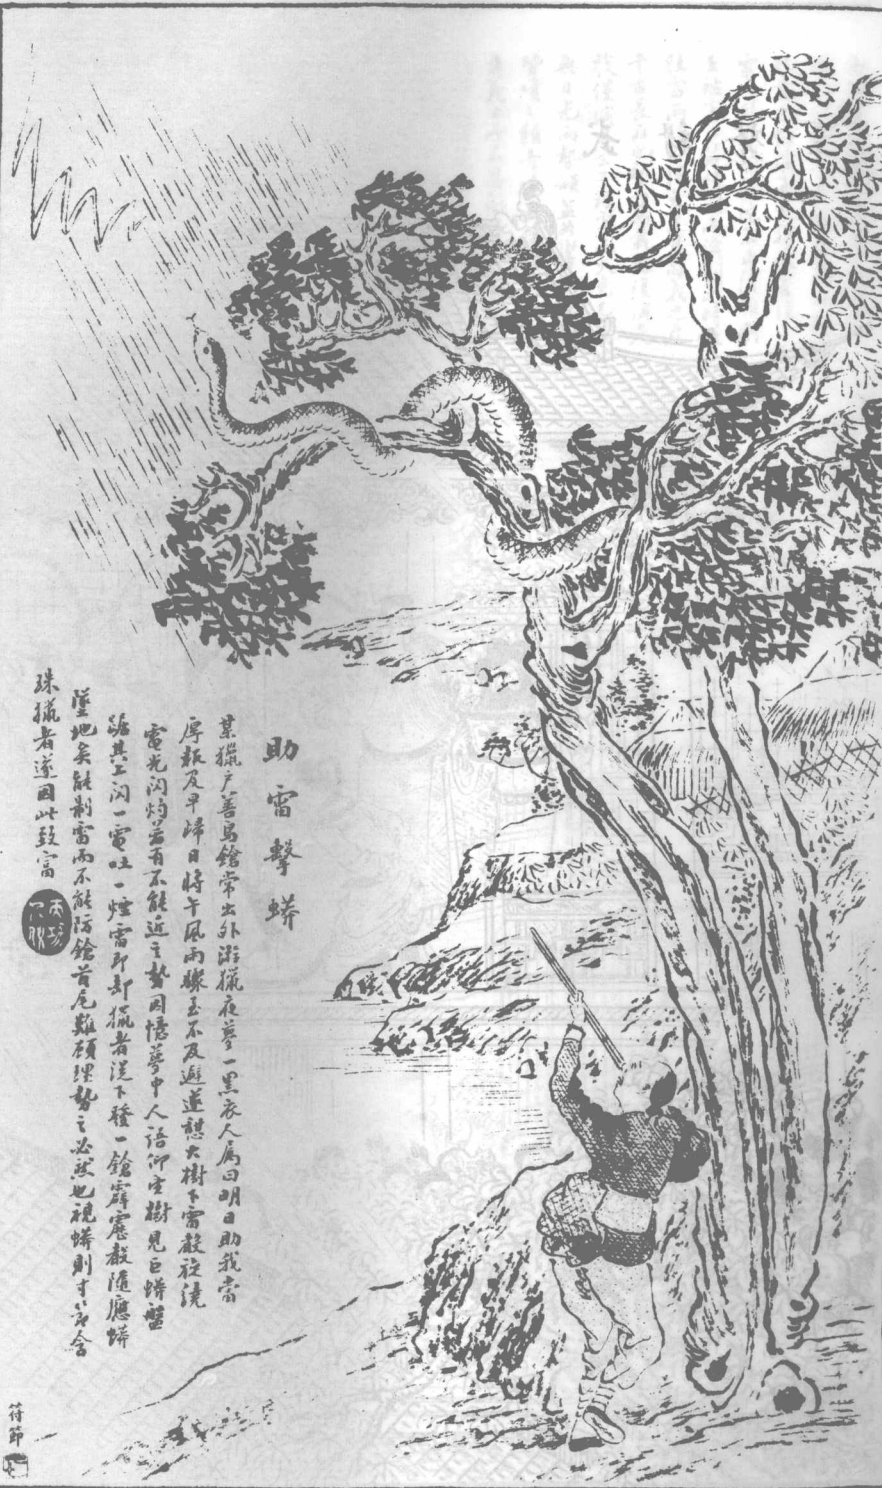 助雷擊蟒
某獵戶善鳥鎗常出外游獵夜夢一黑衣人屬曰明日助我當
厚報及早歸日將午風雨驟至不及避遂憇大樹下雷聲旋繞
電光閃灼若有不能近之勢因憶夢中人語仰望樹見巨蟒盤
踞其上閃一電吐一煙雷即却獵者從下發一鎗霹靂聲隨應蟒
墜地矣能制雷而不能防鎗首尾難顧理勢之必然也視蟒則寸寸含
珠獵者遂因此致富
符節